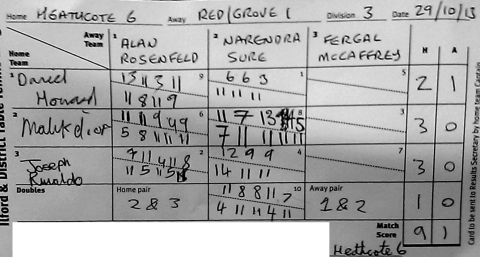 Home HEATHCOTE 6 Away RED/GROVE 1 Division 3 Date 29/10/13
Away Team
Home Team
1 ALAN ROSENFELD
2 NARENDRA SURE
3 FERGAL McCAFFREY
H A
1 David Howard
13 11 3 11 9
11 8 11 9
6 6 3 1
11 11 11
5
2 1
2
11 11 9 49 6
5 8 11 11 11
11 7 13 15 8
7 11 11 11 11
3
3 0
3 Joseph Rinaldo
7 11 4 11 8 2
11 5 11 5 11
12 9 9 4
14 11 11
7
3 0
Doubles
Home pair
2 & 3
11 8 8 11 7 10
4 11 11 4 11
Away pair
1 & 2
1 0
Match Score 9 1
Heathcote 6
Ilford & District Table Tennis
Card to be sent to Results Secretary by home team Captain